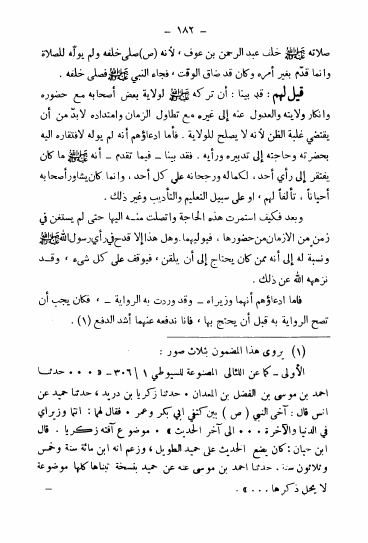 - ١٨٢ -
صلاته ﷺ خلف عبد الرحمن بن عوف ، لأنه (ص) صلى خلفه ولم يولّه للصلاة
وانما قدّم بغير أمره وكان قد ضاق الوقت ، فجاء النبي ﷺ فصلى خلفه .
قيل لهم : قد بينا : أن تركه ﷺ لولاية بعض أصحابه مع حضوره
وانكار ولايته والعدول عنه إلى غيره مع تطاول الزمان وامتداده لابدّ من أن
يقتضي غلبة الظن لأنه لا يصلح للولاية . فأما ادعاؤهم أنه لم يوله لافتقاره اليه
بحضرته وحاجته إلى تدبيره ورأيه . فقد بينا - فيما تقدم - أنه ﷺ ما كان
يفتقر إلى رأي أحد ، لكماله ورجحانه على كل أحد ، وانما كان يشاور أصحابه
أحياناً ، تألفاً لهم ، او على سبيل التعليم والتأديب وغير ذلك .
وبعد فكيف استمرت هذه الحاجة واتصلت منه اليها حتى لم يستغن في
زمن من الأزمان من حضورها ، فيوليهما . وهل هذا إلا قدح في رأي رسول الله ﷺ
ونسبة له إلى أنه ممن كان يحتاج إلى أن يلقن ، فيوقف على كل شيء ، وقد
نزهه الله عن ذلك .
فاما ادعاؤهم أنهما وزيراه - وقد وردت به الرواية - ، فكان يجب أن
تصح الرواية به قبل أن يحتج بها ، فانا ندفعه عنهما أشد الدفع (١) .
(١) يروى هذا المضمون بثلاث صور :
الأولى - كما عن اللئالي المصنوعة للسيوطي ١ / ٣٠٦ - « ... حدثنا
احمد بن موسى بن الفضل بن المعدان . حدثنا زكريا بن دريد ، حدثنا حميد عن
انس قال : آخى النبي ( ص ) بين كتفي ابي بكر وعمر . فقال لهما : انتما وزيراي
في الدنيا والآخرة ... الى آخر الحديث » . موضوع آفته زكريا . قال
ابن حبان : كان يضع الحديث على حميد الطويل ، وزعم انه ابن مائة سنة وخمس
وثلاثون سنة . حدثنا احمد بن موسى عنه عن حميد بنسخة تبناها كلها موضوعة
لا يحل ذكرها ... » . -